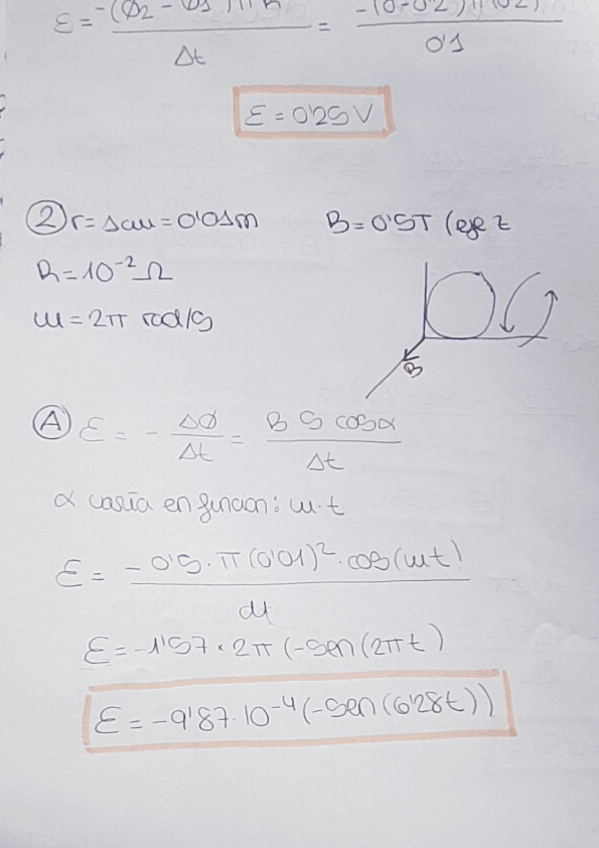 ε = -(Φ2 - Φ1) π R / Δt = -(0-0'2) π (0'2) / 0'1
ε = 0'25 V
② r = 1cm = 0'01m B = 0'5T (eje z
R = 10⁻² Ω
ω = 2π rad/s
B
Ⓐ ε = - ΔΦ / Δt = B S cosα / Δt
α varía en funcion: ω·t
ε = -0'5·π(0'01)²·cos(ωt) / dt
ε = -1'57 × 2π (-sen(2πt)
ε = -9'87·10⁻⁴ (-sen(6'28t))